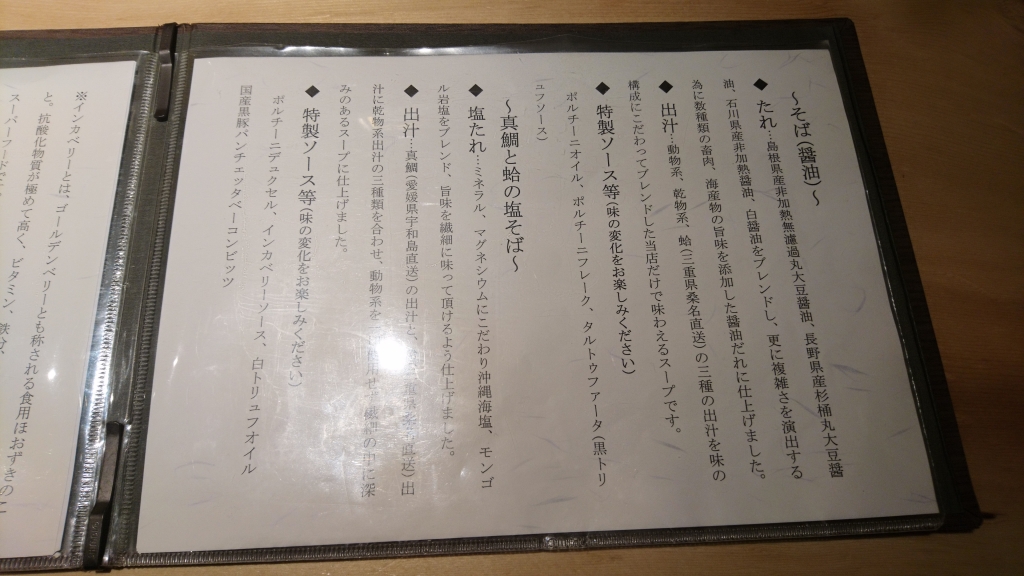 ～そば（醤油）～
◆ たれ…島根県産非加熱無濾過丸大豆醤油、長野県産杉桶丸大豆醤
油、石川県産非加熱醤油、白醤油をブレンドし、更に複雑さを演出する
為に数種類の畜肉、海産物の旨味を添加した醤油だれに仕上げました。
◆ 出汁…動物系、乾物系、蛤（三重県桑名直送）の三種の出汁を味の
構成にこだわってブレンドした当店だけで味わえるスープです。
◆ 特製ソース等（味の変化をお楽しみください）
ポルチーニオイル、ポルチーニフレーク、タルトウファータ（黒トリ
ュフソース）
～真鯛と蛤の塩そば～
◆ 塩たれ…ミネラル、マグネシウムにこだわり沖縄海塩、モンゴ
ル岩塩をブレンド、旨味を繊細に味って頂けるよう仕上げました。
◆ 出汁…真鯛（愛媛県宇和島直送）の出汁と、直送）出
汁に乾物系出汁の三種類を合わせ、動物系を一の中に深
みのあるスープに仕上げました。
◆ 特製ソース等（味の変化をお楽しみください）
ポルチーニデュクセル、インカベリーソース、白トリュフオイル
国産黒豚パンチェッタベーコンビッツ
※インカベリーとは、ゴールデンベリーとも称される食用ほおずきのこ
と。抗酸化物質が極めて高く、ビタミン、鉄分、
スーパーフード